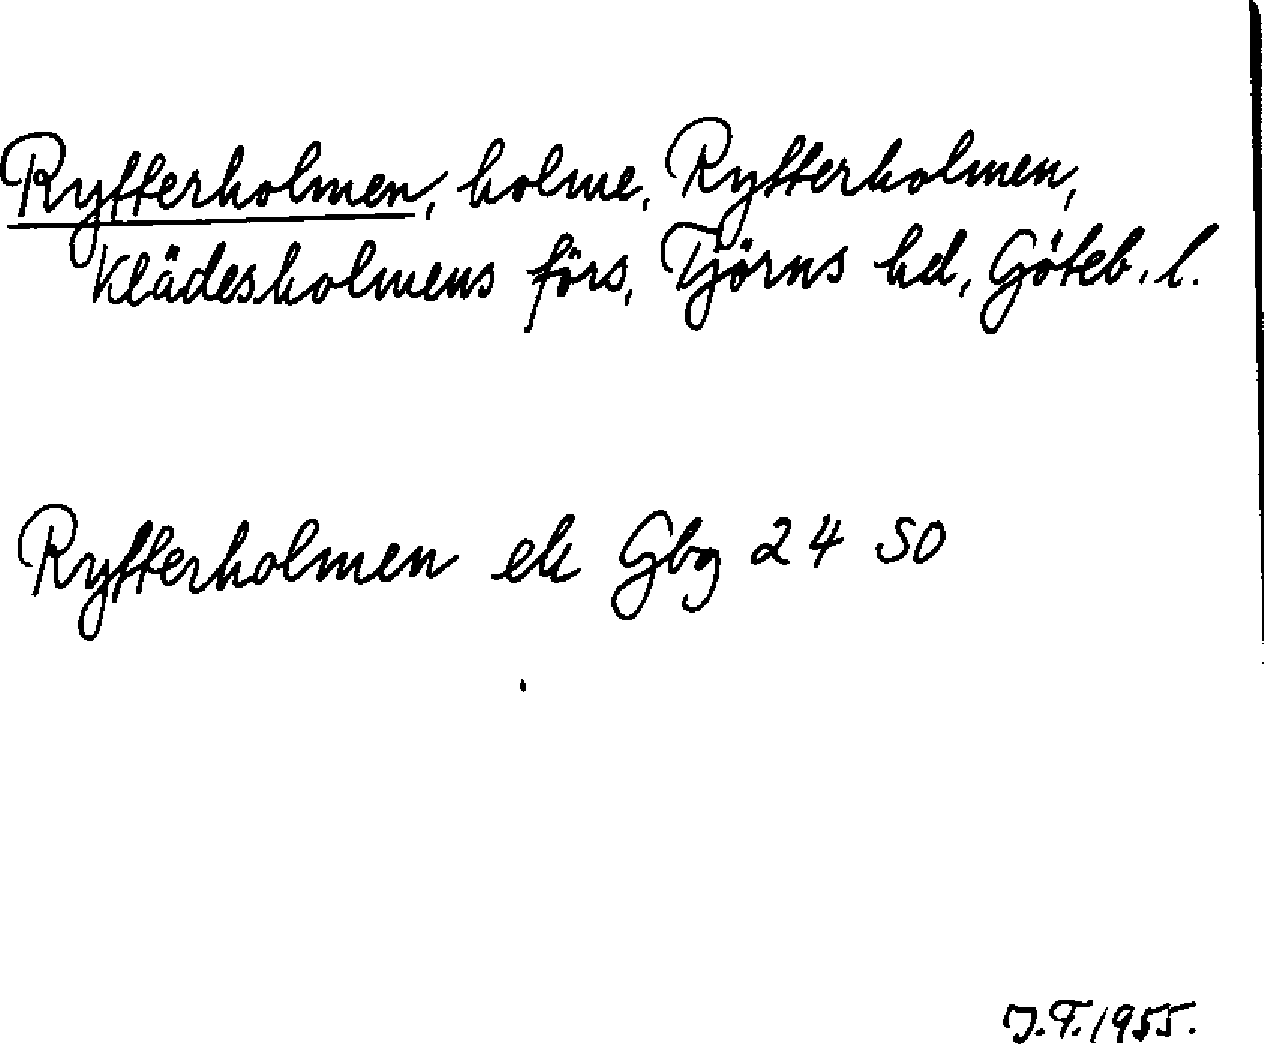 Rytterholmen, holme, Rytterholmen,
Klädesholmens förs, Tjörns hd, Göteb. l.
Rytterholmen ek Gbg 24 SO
J.T. 1955.